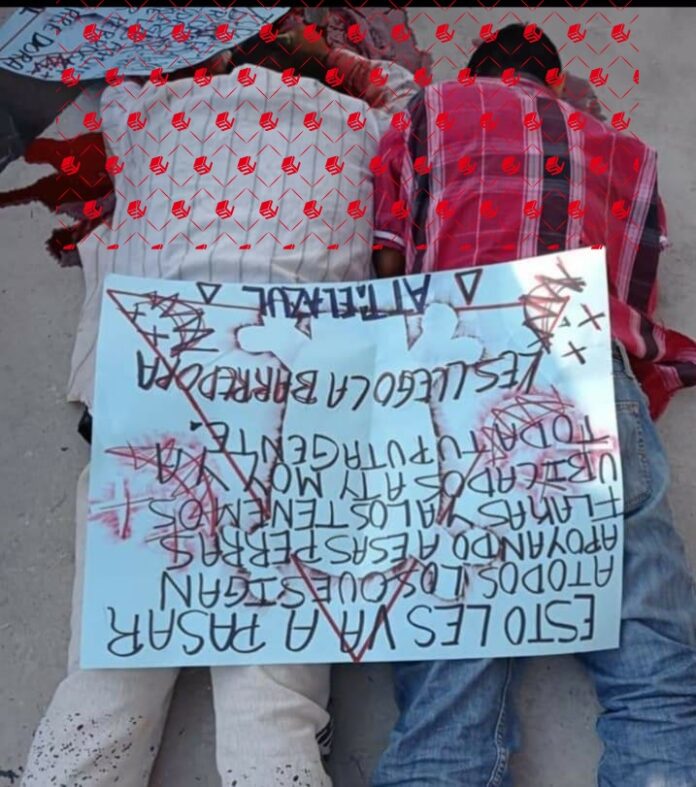 ESTO LES VA A PASAR
A TODOS LOS QUE SIGAN
APOYANDO A ESAS PERRAS
FLAKAS YA LOS TENEMOS
UBICADOS A TY MOY Y A
TODA TU PUTA GENTE.
LES LLEGO LA BARREDORA
ATT: EL AZUL